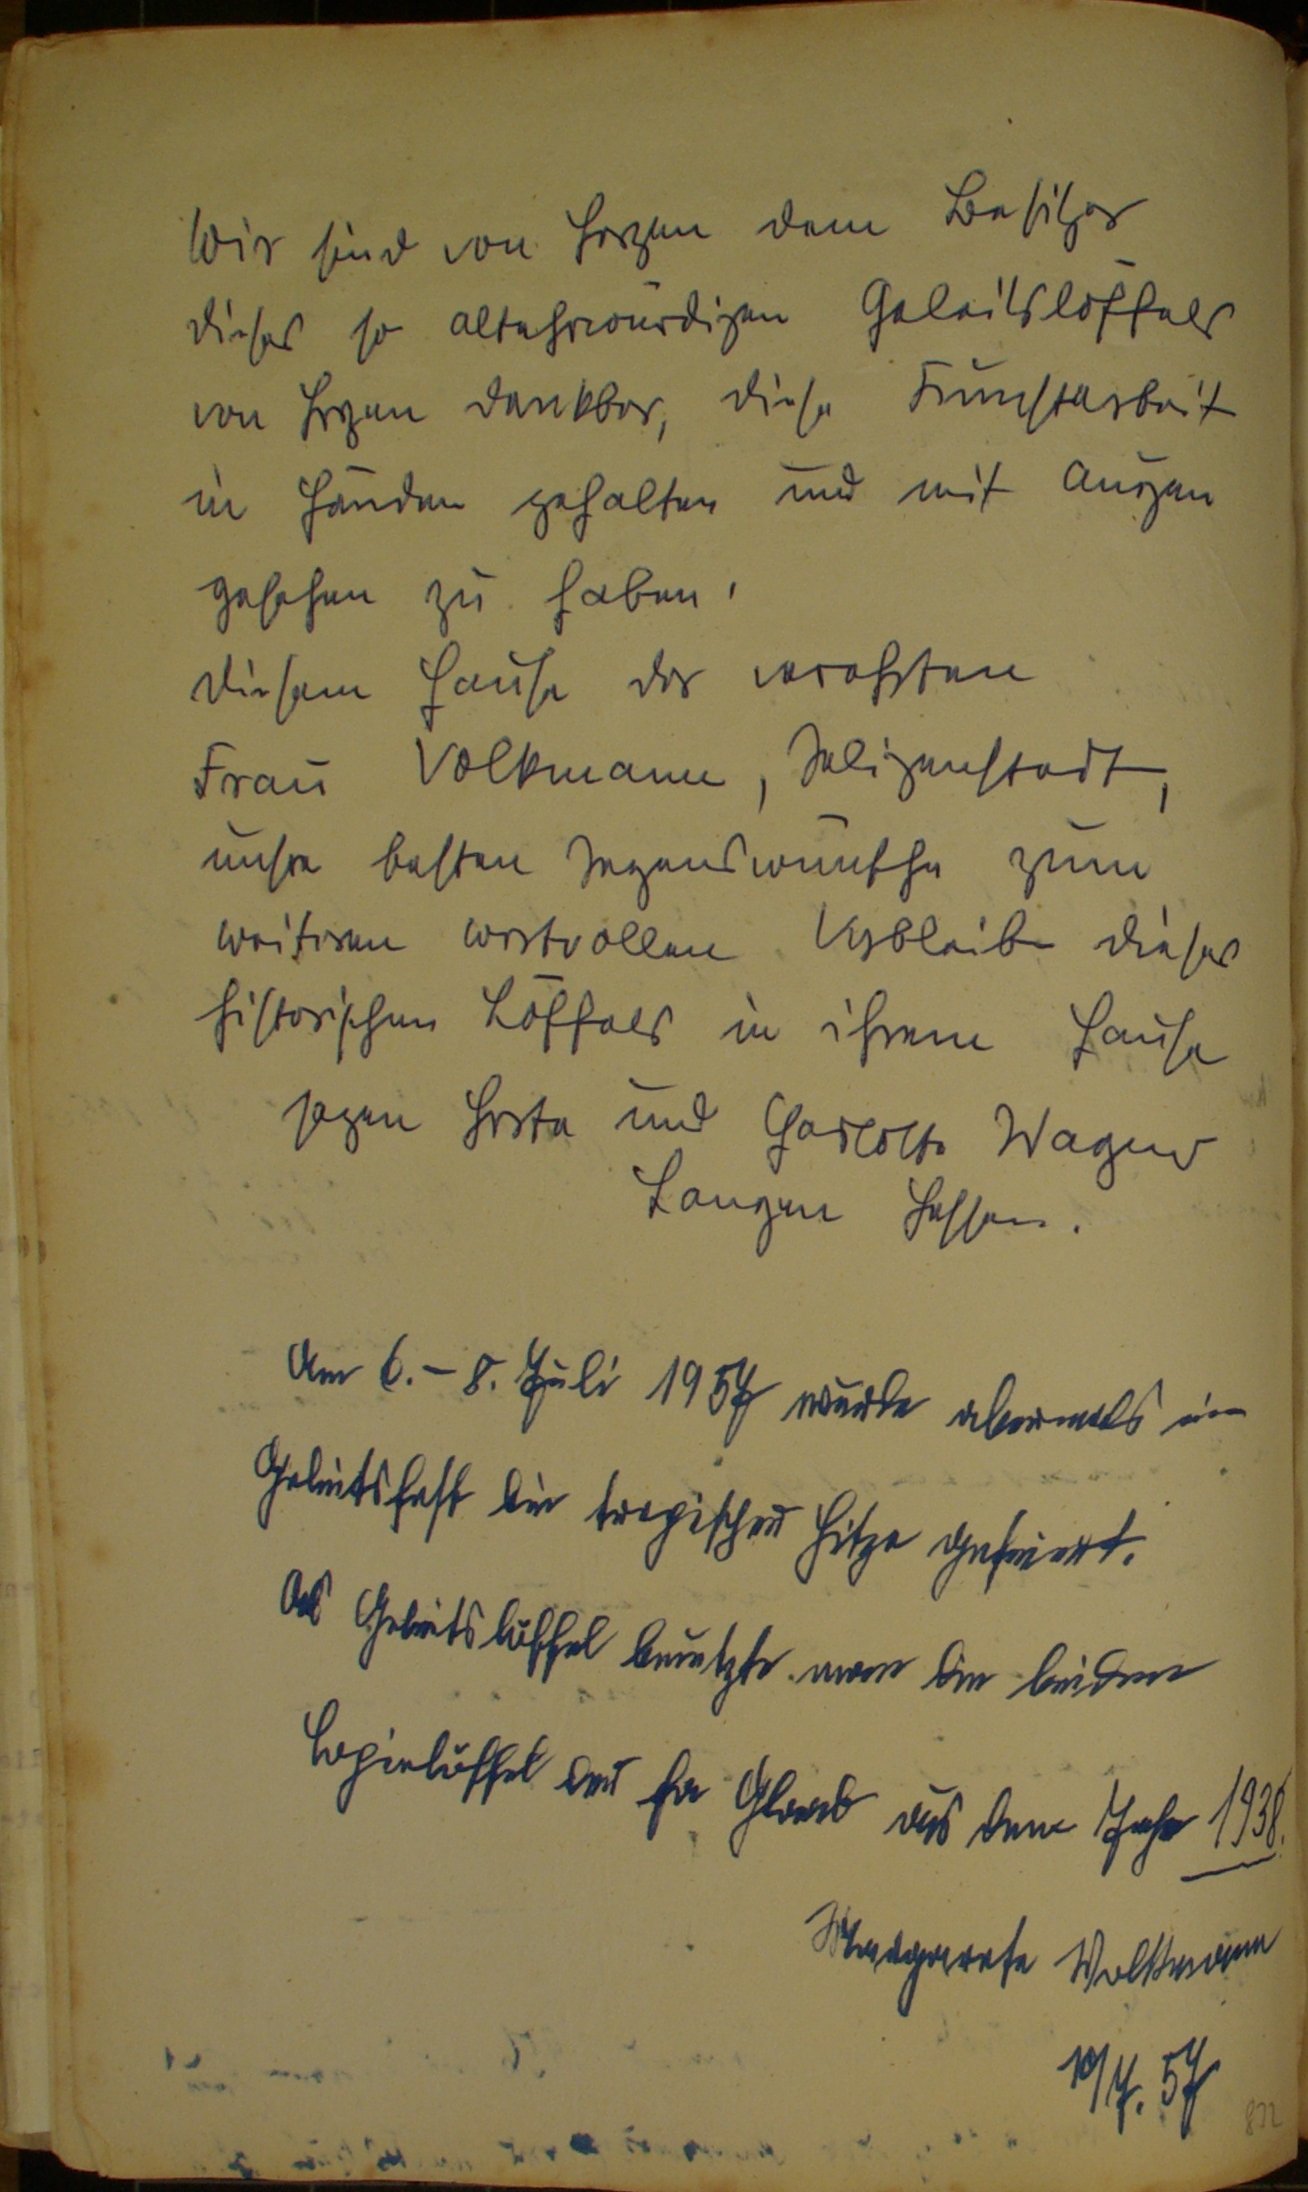 Wir sind von Herzen dem Besitzer
dieses so altehrwürdigen Geleitslöffels
von Herzen dankbar, diese Kunstarbeit
in Händen gehalten und mit Augen
gesehen zu haben.
Diesem Hause der verehrten
Frau Volkmann, Seligenstadt,
unsre besten Segenswünsche zum
weiteren wertvollen Verbleib dieses
historischen Löffels in ihrem Hause
sagen Herta und Charlotte Wagner
Langen Hessen.
Am 6. - 8. Juli 1957 wurde abermals ein
Geleitsfest bei tropischer Hitze gefeiert.
Als Geleitslöffel benutzte man die beiden
Kopielöffel der Fa Glaab aus dem Jahr 1938.
Margarete Volkmann
10/7. 57